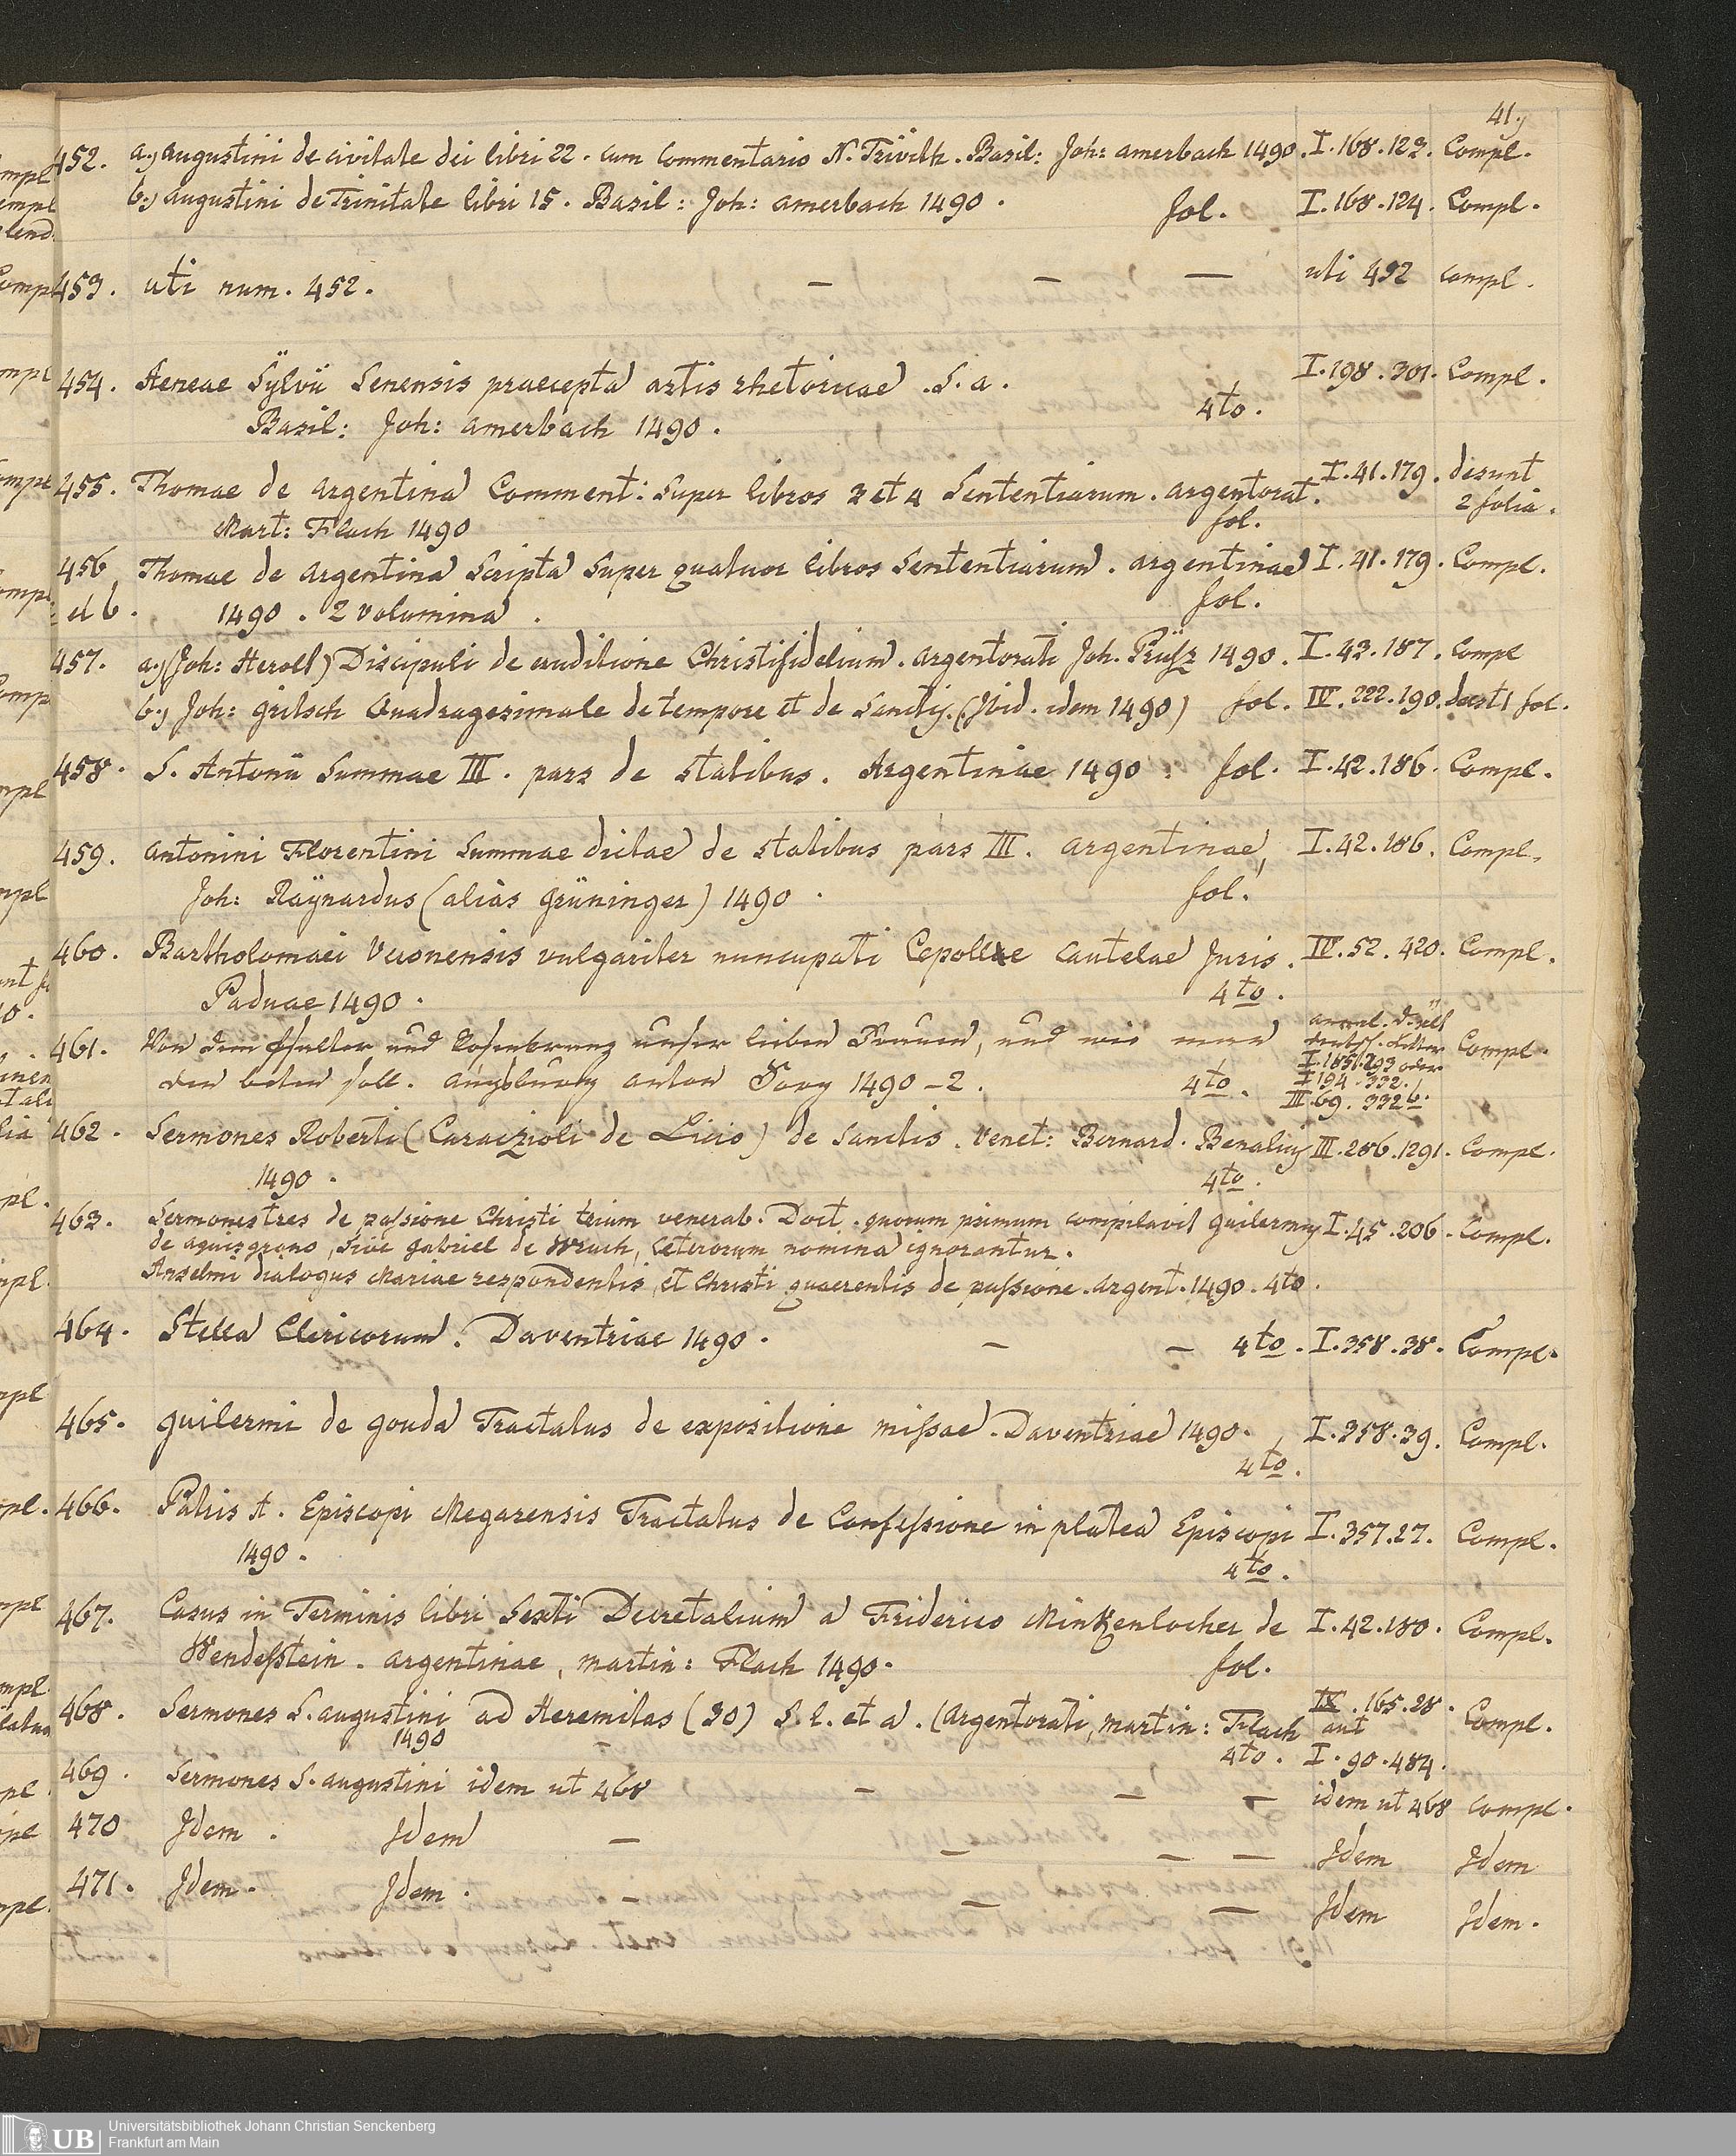 41.)
452. a.) Augustini de civitate dei libri 22. cum Commentario N. Trivith. Basil: Joh: Amerbach 1490. I.168.123. Compl.
b.) Augustini de Trinitate libri 15. Basil: Joh: Amerbach 1490. fol. I.168.124. Compl.
453. uti num. 452. — — — uti 452 compl.
454. Aeneae Sÿlvii Senensis praecepta artis rhetoricae. S. a. I.198.301. Compl.
Basil: Joh: Amerbach 1490. 4to.
455. Thomae de Argentina Comment: Super libros 3 et 4 Sententiarum. Argentorat. I.41.179. desunt
Mart: Flach 1490 fol. 2 folia.
456 Thomae de Argentina Scripta Super quatuor libros Sententiarum. Argentinae I.41.179. Compl.
et b. 1490. 2 volumina. fol.
457. a.) (Joh: Herolt) Discipuli de eruditione Christifidelium. Argentorati Joh. Prüsz 1490. I.43.187. Compl
b.) Joh: Gritsch Quadragesimale de tempore et de Sanctis. (Ibid. idem 1490) fol. IV.222.190. deest 1 fol.
458. S. Antonii Summae III. pars de statibus. Argentinae 1490. fol. I.42.186. Compl.
459. Antonini Florentini Summae dictae de statibus pars III. Argentinae, I.42.186. Compl.
Joh: Raÿnardus (alias Grüninger) 1490. fol.
460. Bartholomaei Veronensis vulgariter nuncupati Cepollae Cautelae Juris. IV.52.420. Compl.
Paduae 1490. 4to.
461. Von dem Psalter und Rosenkranz unser lieben Frauen, und wie man Compl.
den beten soll. Augsburg Anton Sorg 1490-2. 4to.
I.185.293 oder
I 194.332.
III.69.332b.
462. Sermones Roberti (Caraczioli de Licio) de Sanctis. Venet: Bernard. Benalius III.286.1291. Compl.
1490. 4to.
463. Sermones tres de passione Christi trium venerab. Doct. quorum primum compilavit Guilermus I.45.206. Compl.
de Aquisgrano, sive Gabriel de Wrach, ceterorum nomina ignorantur.
Anselmi dialogus Mariae respondentis, et Christi quaerentis de passione. Argent. 1490. 4to.
464. Stella Clericorum. Daventriae 1490. — — 4to. I.358.38. Compl.
465. Guilermi de Gouda Tractatus de expositione missae. Daventriae 1490. I.358.39. Compl.
4to.
466. Patris A. Episcopi Megarensis Tractatus de Confessione in platea Episcopi I.357.27. Compl.
1490. 4to.
467. Casus in Terminis libri Sexti Decretalium a Friderico Minkenlocher de I.42.180. Compl.
Wendesstein. Argentinae, Martin: Flach 1490. fol.
468. Sermones S. Augustini ad Heremitas (30) S. l. et a. (Argentorati, Martin: Flach IX.165.28. Compl.
1490 — 4to. aut
I.90.484.
469. Sermones S. Augustini idem ut 468 — — — idem ut 468 compl.
470 Idem. Idem — — — — Idem Idem
471. Idem. Idem. — — — Idem Idem.
UB Universitätsbibliothek Johann Christian Senckenberg
Frankfurt am Main